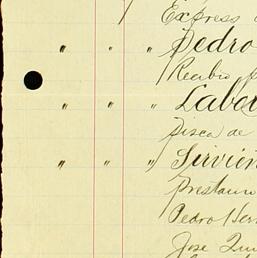 Express
" " " Pedro
Recibio
" " " Labor
Pisca de
" " " Sirvien
Prestaron
Pedro Her
Jose